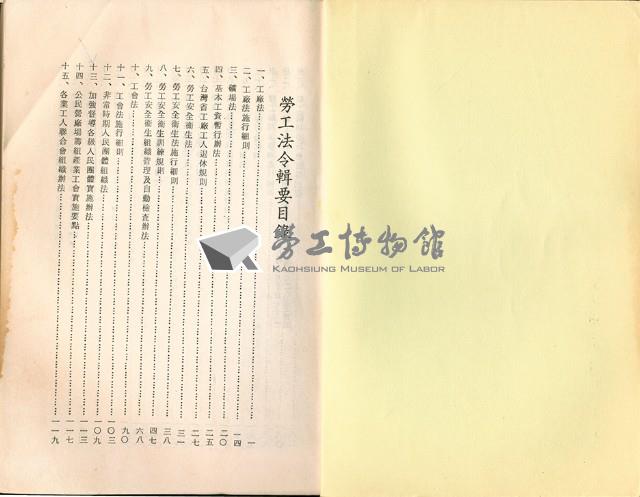 勞工法令輯要目錄
一、工廠法…………一
二、工廠法施行細則…………一四
三、礦場法…………二〇
四、基本工資暫行辦法…………二五
五、台灣省工廠工人退休規則…………二七
六、勞工安全衛生法…………三一
七、勞工安全衛生法施行細則…………三八
八、勞工安全衛生訓練規則…………四七
九、勞工安全衛生組織管理及自動檢查辦法…………六八
十、工會法…………九〇
十一、工會法施行細則…………一〇三
十二、非常時期人民團體組織法…………一〇九
十三、加強督導各級人民團體實施辦法…………一一三
十四、公民營廠場籌組產業工會實施要點…………一一七
十五、各業工人聯合會組織辦法…………一一九
勞工博物館
KAOHSIUNG MUSEUM OF LABOR